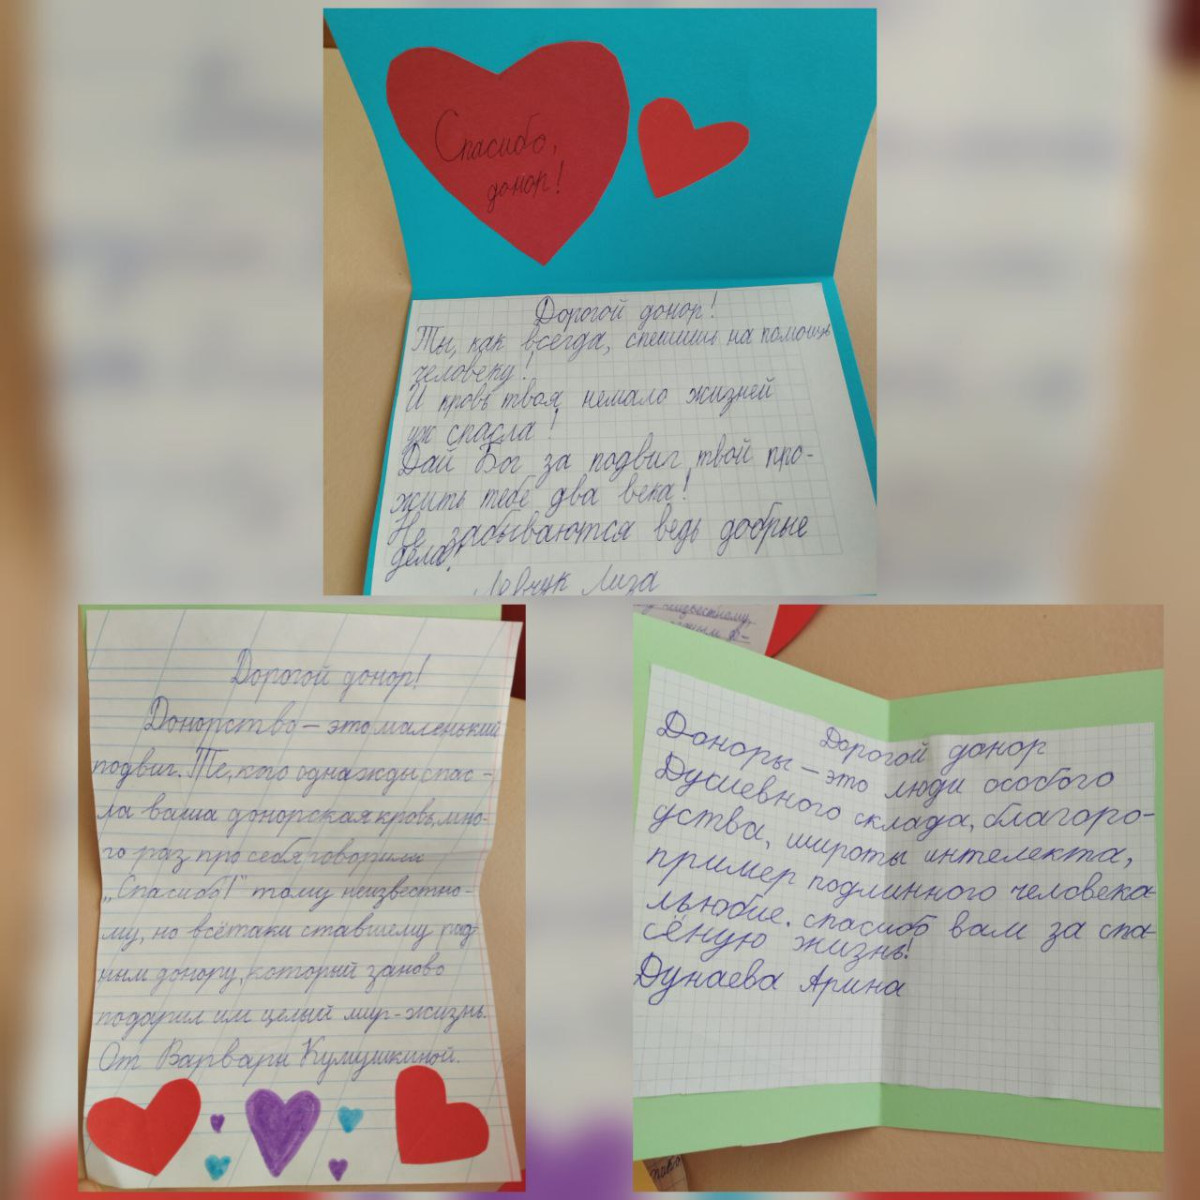 Спасибо,
донор!
Дорогой донор!
Ты, как всегда, спешишь на помощь
человеку!
И кровь твоя немало жизней
уж спасла!
Дай Бог за подвиг твой про-
жить тебе два века!
Не забываются ведь добрые
дела!
Левчук Лиза
Дорогой донор!
Донорство – это маленький
подвиг. Те, кого однажды спас-
ла ваша донорская кровь, мно-
го раз про себя говорили
„Спасибо!" тому неизвестно-
му, но всётаки ставшему род-
ным донору, который заново
подарил им целый мир-жизнь.
От Варвары Кумушкиной.
неизвестному,
Дорогой донор
Доноры – это люди особого
Душевного склада, благоро-
дства, широты интелекта,
пример подлинного человека-
льюбие. спасибо вам за спа-
сёную жизнь!
Дунаева Арина